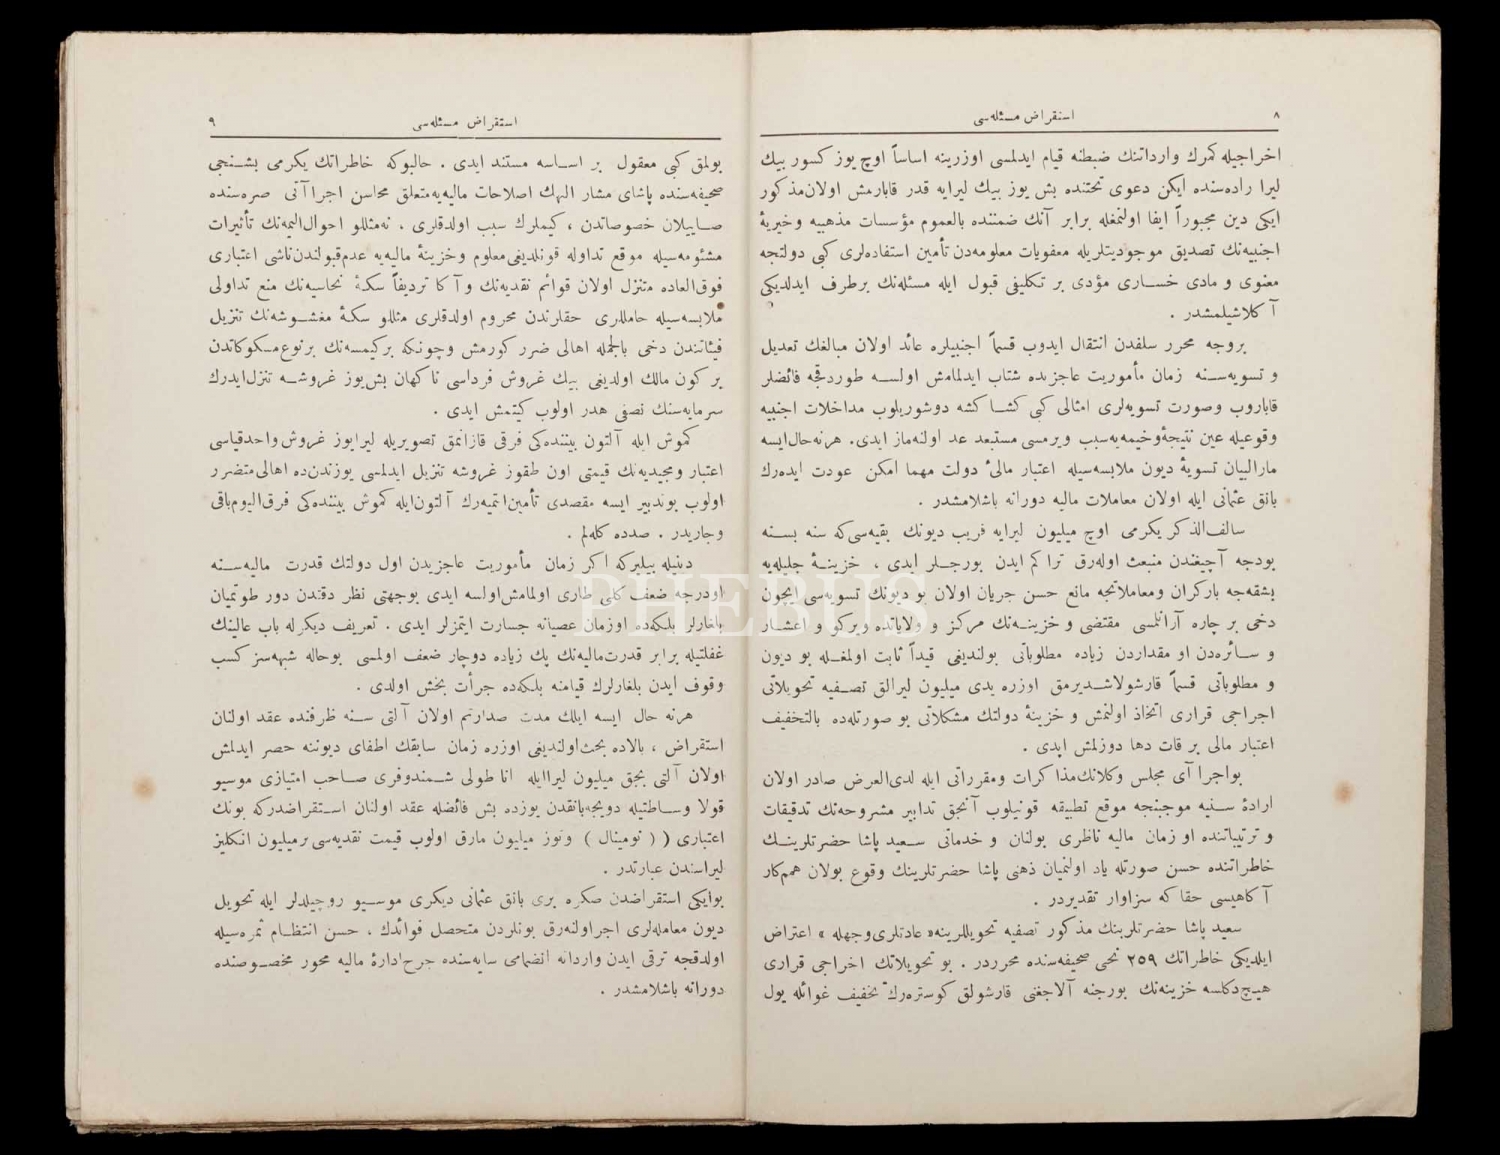 ٨
استقراض مسئله‌سی
اخراجیله كمرك وارداتنك ضبطنه قیام ایدلمسی اوزرینه اساساً اوچ یوز كسور بیك
لیرا راده‌سنده ایكن دعوی تحتنده بش یوز بیك لیرایه قدر قابارمش اولان مذكور
ایكی دین مجبوراً ایفا اولنمغله برابر آنك ضمننده بالعموم مؤسسات مذهبیه و خیریهٔ
اجنبیه‌نك تصدیق موجودیتلریله معفویات معلومه‌دن تأمین استفاده‌لری كبی دولتجه
معنوی و مادی خساری مؤدی بر تكلیفی قبول ایله مسئله‌نك برطرف ایدلدیكی
آكلاشیلمشدر .
بروجه محرر سلفدن انتقال ایدوب قسماً اجنبیلره عائد اولان مبالغك تعدیل
و تسویه‌سنه زمان مأموریت عاجزیده شتاب ایدلمامش اولسه طوردقجه فائضلر
قاباروب وصورت تسویه‌لری امثالی كبی كشا كشه دوشوریلوب مداخلات اجنبیه
وقوعیله عین نتیجهٔ وخیمه‌یه سبب ویرمسی مستبعد عد اولنه‌ماز ایدی. هرنه حال ایسه
مارالبیان تسویهٔ دیون ملابسه‌سیله اعتبار مالیٔ دولت مهما امكن عودت ایده‌رك
بانق عثمانی ایله اولان معاملات مالیه دورانه باشلامشدر .
سالف الذكر یكرمی اوچ میلیون لیرایه قریب دیونك بقیه‌سی كه سنه بسنه
بودجه آچیغندن منبعث اوله‌رق تراكم ایدن بورجلر ایدی ، خزینهٔ جلیله‌یه
بشقه‌جه باركران ومعاملاتجه مانع حسن جریان اولان بو دیونك تسویه‌سی ایچون
دخی بر چاره آرانلمسی مقتضی و خزینه‌نك مركز و ولایاتده ویركو و اعشار
و سائره‌دن او مقداردن زیاده مطلوباتی بولندیغی قیداً ثابت اولمغله بو دیون
و مطلوباتی قسماً قارشولاشدیرمق اوزره یدی میلیون لیرالق تصفیه تحویلاتی
اخراجی قراری اتخاذ اولنمش و خزینهٔ دولتك مشكلاتی بو صورتله‌ده بالتخفیف
اعتبار مالی بر قات دها دوزلمش ایدی .
بواجرا آی مجلس وكلانك مذاكرات ومقرراتی ایله لدی العرض صادر اولان
ارادهٔ سنیه موجبنجه موقع تطبیقه قونیلوب آنجق تدابیر مشروحه‌نك تدقیقات
و ترتیباتنده او زمان مالیه ناظری بولنان و خدماتی سعید پاشا حضرتلرینك
خاطراتنده حسن صورتله یاد اولنمیان ذهنی پاشا حضرتلرینك وقوع بولان همم كار
آكاهیسی حقا كه سزاوار تقدیردر .
سعید پاشا حضرتلرینك مذكور تصفیه تحویللرینه « عادتلری وجهله » اعتراض
ایلدیكی خاطراتك ٢٥٩ نجی صحیفه‌سنده محرردر . بو تحویلاتك اخراجی قراری
هیچ دكلسه خزینه‌نك بورجنه آلاجغنی قارشولق كوستره‌رك تخفیف غوائله یول
٩
استقراض مسئله‌سی
بولمق كبی معقول بر اساسه مستند ایدی . حالبوكه خاطراتك یكرمی بشنجی
صحیفه‌سنده پاشای مشار الیهك اصلاحات مالیه‌یه متعلق محاسن اجرا آتی صره‌سنده
صاییلان خصوصاتدن ، كیملرك سبب اولدقلری ، نه‌مثللو احوال الیمه‌نك تأثیرات
مشئومه‌سیله موقع تداوله قونلدیغی معلوم وخزینهٔ مالیه‌یه عدم قبولندن ناشی اعتباری
فوق العاده متنزل اولان قوائم نقدیه‌نك و آكا تردیفاً سكهٔ نحاسیه‌نك منع تداولی
ملابسه‌سیله حامللری حقلرندن محروم اولدقلری مثللو سكهٔ مغشوشه‌نك تنزیل
فیئاتندن دخی بالجمله اهالی ضرر كورمش و چونكه بركیمسه‌نك برنوع مسكوكاتدن
بر كون مالك اولدیغی بیك غروش فرداسی ناكهان بش یوز غروشه تنزل ایدرك
سرمایه‌سنك نصفی هدر اولوب كیتمش ایدی .
كموش ایله آلتون بیننده‌كی فرقی قازانمق تصوریله لیرا یوز غروش واحد قیاسی
اعتبار ومجیدیه‌نك قیمتی اون طقوز غروشه تنزیل ایدلمسی یوزندن ده اهالی متضرر
اولوب بوتدبیر ایسه مقصدی تأمین ایتمیه‌رك آلتون ایله كموش بیننده‌كی فرق الیوم باقی
وجاریدر . صدده كله‌لم .
دینیله بیلیركه اكر زمان مأموریت عاجزیدن اول دولتك قدرت مالیه‌سنه
اودرجه ضعف كلی طاری اولمامش اولسه ایدی بوجهتی نظر دقتدن دور طوتمیان
بلغارلر بلكه‌ده اوزمان عصیانه جسارت ایتمزلر ایدی . تعریف دیكرله باب عالینك
غفلتیله برابر قدرت مالیه‌نك پك زیاده دوچار ضعف اولمسی بوحاله شبهه‌سز كسب
وقوف ایدن بلغارلرك قیامنه بلكه‌ده جرأت بخش اولدی .
هرنه حال ایسه ایلك مدت صدارتم اولان آلتی سنه ظرفنده عقد اولنان
استقراض ، بالاده بحث اولندیغی اوزره زمان سابقك اطفای دیوننه حصر ایدلمش
اولان آلتی بچق میلیون لیرا ایله اناطولی شمندوفری صاحب امتیازی موسیو
قولا وساطتیله دویچه بانقدن یوزده بش فائضله عقد اولنان استقراضدركه بونك
اعتباری ( ( نومینال ) وتوز میلیون مارق اولوب قیمت نقدیه‌سی برمیلیون انكلیز
لیراسندن عبارتدر .
بو ایكی استقراضدن صكره بری بانق عثمانی دیكری موسیو روچیلدلر ایله تحویل
دیون معامله‌لری اجرا اولنه‌رق بونلردن متحصل فوائدك ، حسن انتظام ثمره‌سیله
اولدقجه ترقی ایدن وارداته انضمامی سایه‌سنده چرخ ادارهٔ مالیه محور مخصوصنده
دورانه باشلامشدر .
PHEBUS